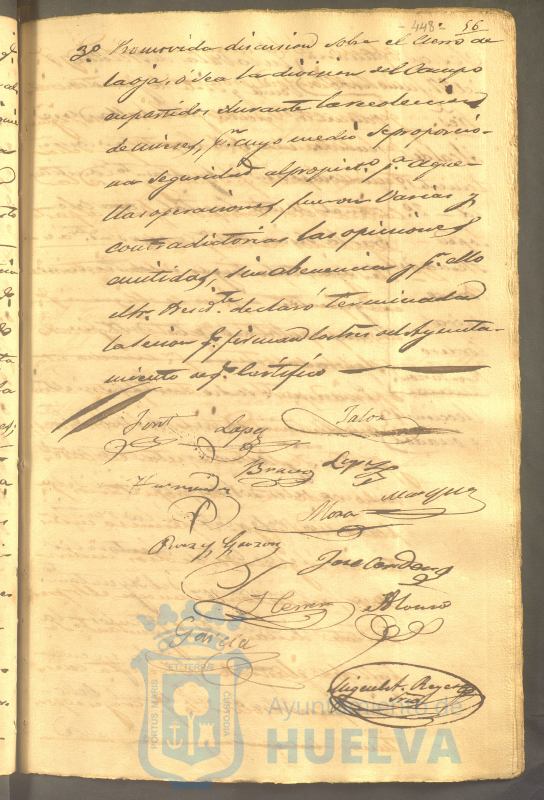 - 448 - 56
3.º Promovida discusion sobre el cierro de
la oja, ó sea la division del Campo
en partidos durante la recoleccion
de mieses, pr. cuyo medio se proporcio-
na seguridad al propiet.º pª aque-
llas operaciones, fueron varias y
contradictorias las opiniones
emitidas, sin abenencia y pr. ello
el Sr. Presid.te declaró terminada
la sesion qe. firman los Sres. del Ayunta-
miento de qe. Certifico
Font Lopez Talon
Bravo Lopez
Hernandz
Mora Marquez
Perez y Garzon
Jose Cordero
Herrer Alonso
Garcia
Miguel A. Reyes
Srio
PORTUS MARIS ET TERRE CUSTODIA
Ayuntamiento de
HUELVA